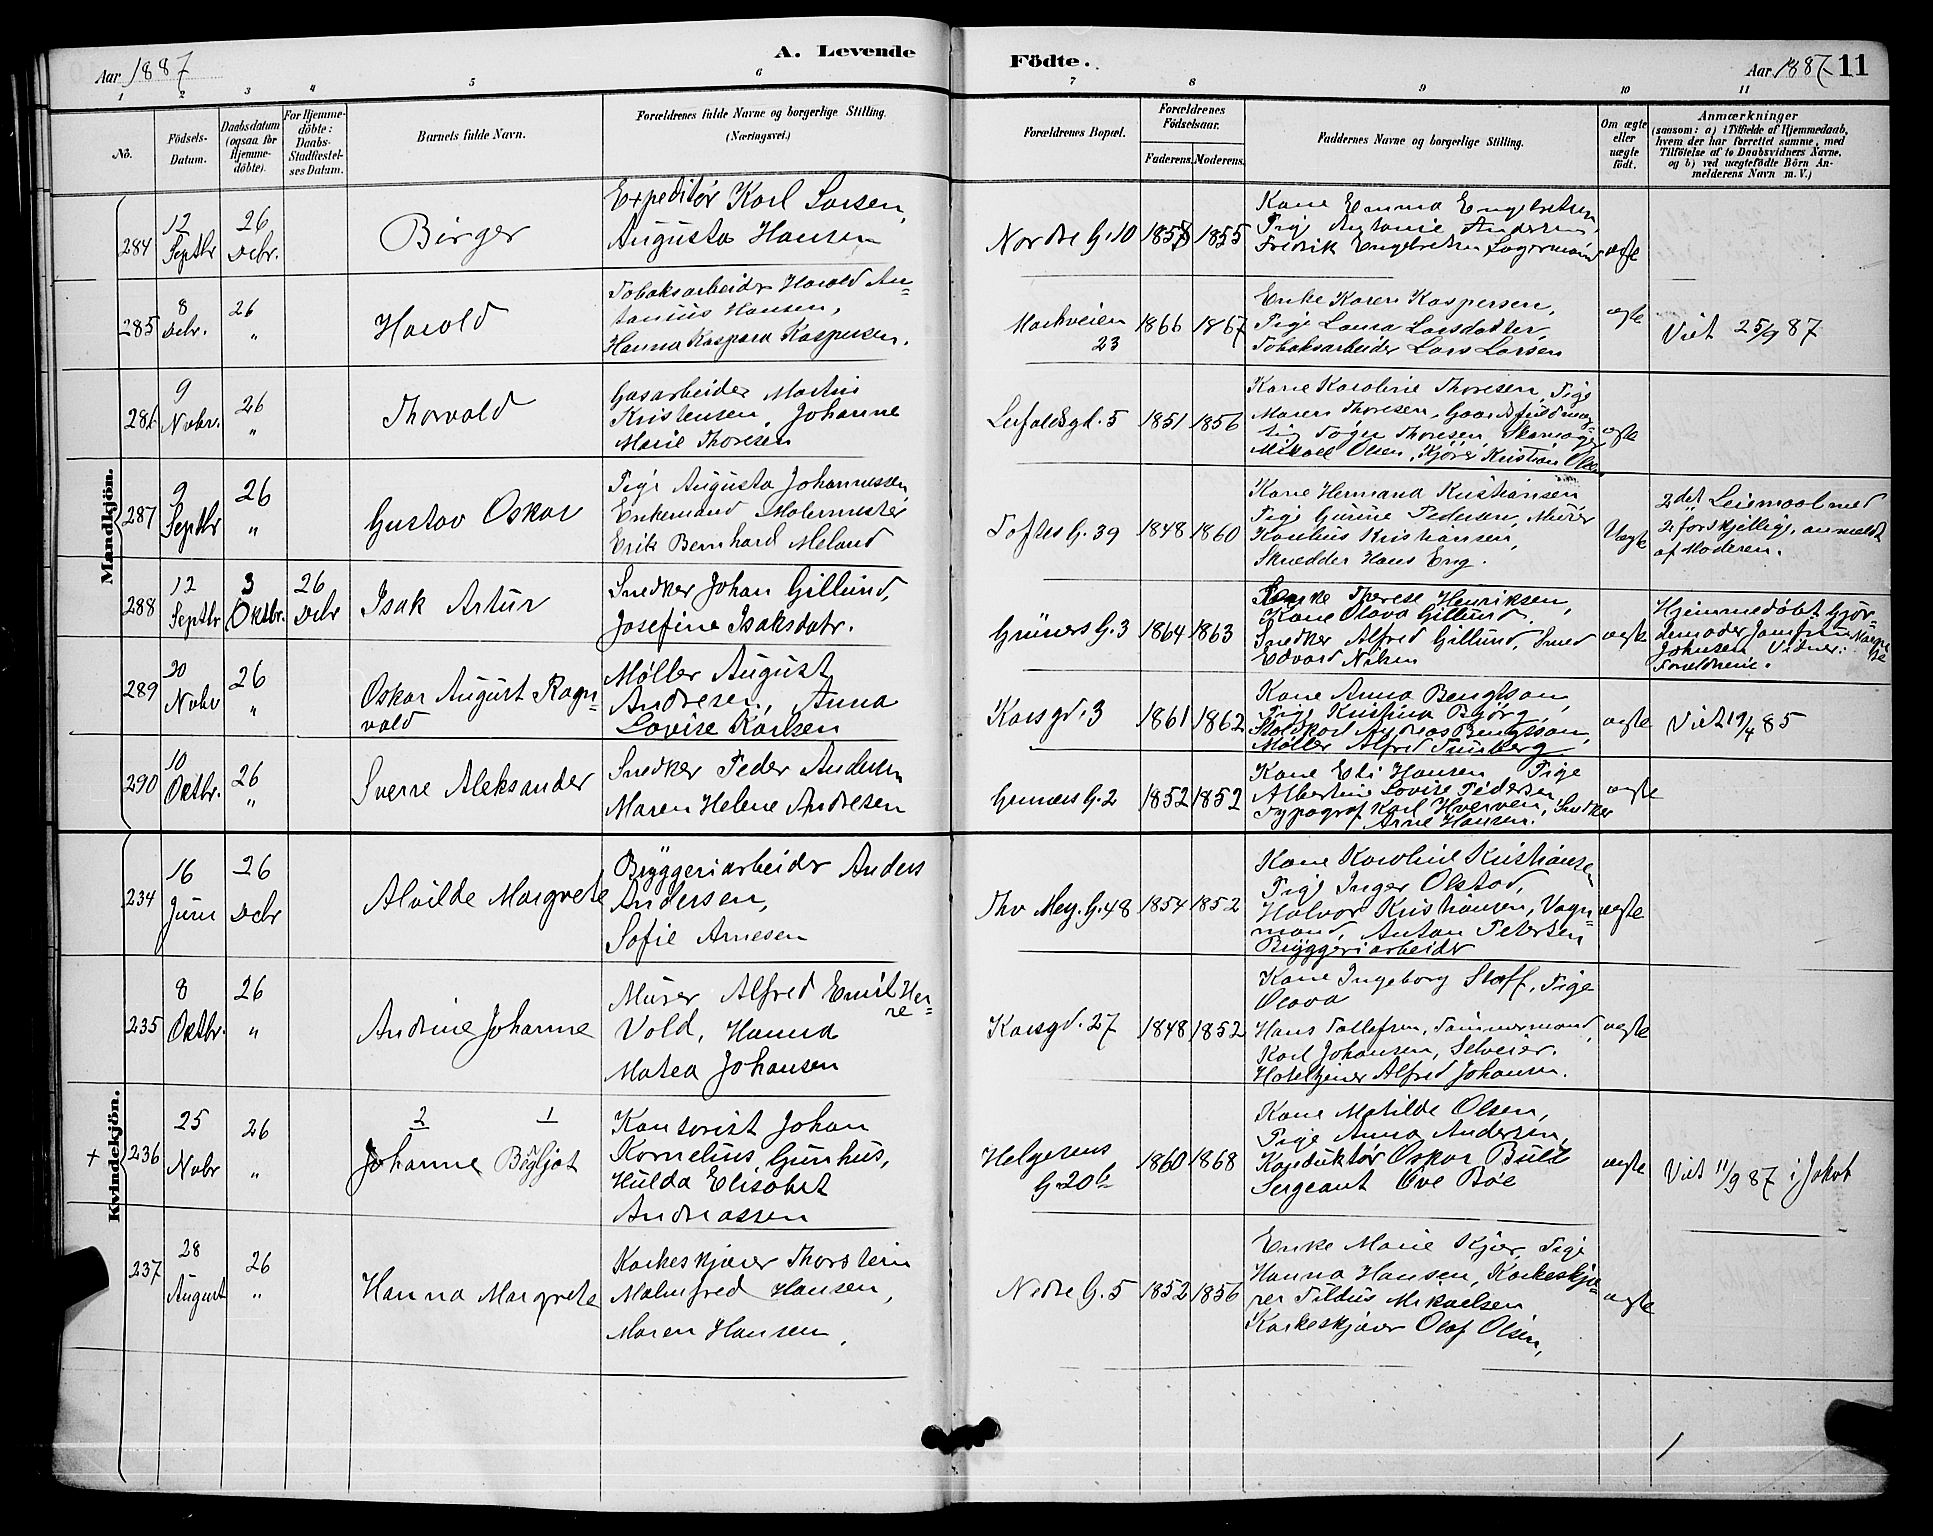 A. Levende Födte.
Aar 1887
Aar 1887 11
1 2 3 4 5 6 7 8 9 10 11
No.
Födsels-Datum.
Daabsdatum (ogsaa for Hjemme-döbte).
For Hjemme-döbte: Daabs-Stadfæstel-ses Datum.
Barnets fulde Navn.
Forældrenes fulde Navne og borgerlige Stilling. (Næringsvei.)
Forældrenes Bopæl.
Forældrenes Födselsaar.
Faderens. Moderens.
Faddernes Navne og borgerlige Stilling.
Om ægte eller uægte födt.
Anmærkninger
(saasom: a) i Tilfælde af Hjemmedaab,
hvem der har forrettet samme, med
Tilföielse af to Daabsvidners Navne,
og b) ved uægtefödte Börn An-
melderens Navn m. V.)
Mandkjön.
284
12 Septbr
26 Dcbr.
Birger
Expeditør Karl Larsen,
Augusta Hansen
Nordre G. 10
1858 1855
Kone Emma Engebretsen,
Pige Antonie Andersen,
Fredrik Engebretsen Lagermand
ægte
285
8 Dcbr.
26 "
Harald
Tobaksarbeider Harald An=
tonius Hansen,
Hanna Kaspara Kaspersen.
Markveien
23
1866 1867
Enke Karen Kaspersen,
Pige Laura Larsdatter,
Tobaksarbeider Lars Larsen
ægte
Viet 25/9 87
286
9 Nvbr.
26 "
Thorvald
Gasarbeider Martin
Kristensen, Johanne
Marie Thoresen
Leufaldsgd. 5
1851 1856
Kone Karoline Thoresen, Pige
Maren Thoresen, Gaardsfuldmæg=
tig Thoresen, Skomager
Mikael Olsen, Kjører Kristian Olsen
ægte
287
9 Septbr
26 "
Gustav Oskar
Pige Augusta Johannessen,
Enkemand Malermester
Erik Bernhard Meland
Toftes G. 39
1848 1860
Kone Hermana Kristiansen
Pige Gunine Pedersen, Murer
Kristiansen,
Skrædder Hans Eng.
Uægte
2det Leiermaal med
2 forskjellige, anmeldt
af Moderen.
288
12 Septbr
3 Oktbr.
26 Dcbr
Isak Artur
Snedker Johan Gillund,
Josefine Isaksdatr.
Grüners G. 3
1864 1863
Enke Therese Henriksen,
Kone Olava Gillund,
Snedker Alfred Gillund, Smed
Edvard Nilsen
ægte
Hjemmedøbt Gjør-
demoder Jomfru Margre
Johnsen Vidner: the
Forældrene.
289
20 Nvbr
26 "
Oskar August Ragn=
vald
Møller August
Andresen, Anna
Lovise Karlsen
Korsgd. 3
1861 1862
Kone Anna Bengtson,
Pige Kristina Bjørg,
Staldkarl Andreas Bengtsson,
Møller Alfred Tunberg
ægte
Viet 19/4 85
290
10 Oktbr.
26 "
Sverre Aleksander
Snedker Peder Andersen
Maren Helene Andresen
Grüners G. 2
1852 1852
Kone Eli Hansen Pige
Albertine Lovise Pedersen
Typograf Karl Hverven, Snedker
Arne Hansen.
ægte
Kvindekjön.
234
16 Juni
26 Dcbr
Alvilde Margrete
Bryggeriarbeider Anders
Andersen,
Sofie Arnesen
Thv Mey. G. 48
1854 1852
Kone Karoline Kristiansen
Pige Inger Olstad,
Halvor Kristiansen, Vogn=
mand, Anton Petersen
Bryggeriarbeider
ægte
235
8 Oktbr.
26 "
Andrine Johanne
Murer Alfred Emil Her=
re=
Vold, Hanna
Matea Johansen
Korsgd. 27
1848 1852
Kone Ingeborg Staff, Pige
Olava
Hans Tollefsen, Tømmermand,
Karl Johansen, Selveier.
Hoteltjener Alfred Johansen.
ægte
+ 236
25 Nvbr
26 "
2 1
Johanne Bergljot
Kontorist Johan
Kornelius Gunhus,
Hulda Elisabet
Andreassen
Helgesens
G. 20b
1860 1868
Kone Matilde Olsen,
Pige Anna Andersen,
Konduktør Oskar Bull
Sergeant Ove Bøe
ægte
Viet 11/9 87 i Jakob
237
28 August
26 "
Hanna Margrete
Karkeskjærer Thorstein
Malmfred Hansen,
Maren Hansen,
Nedre G. 5
1852 1856
Enke Marie Kjær, Pige
Hanna Hansen, Korkeskjæ=
rer Mikaelsen
Korkeskjærer Olaf Olsen,
ægte